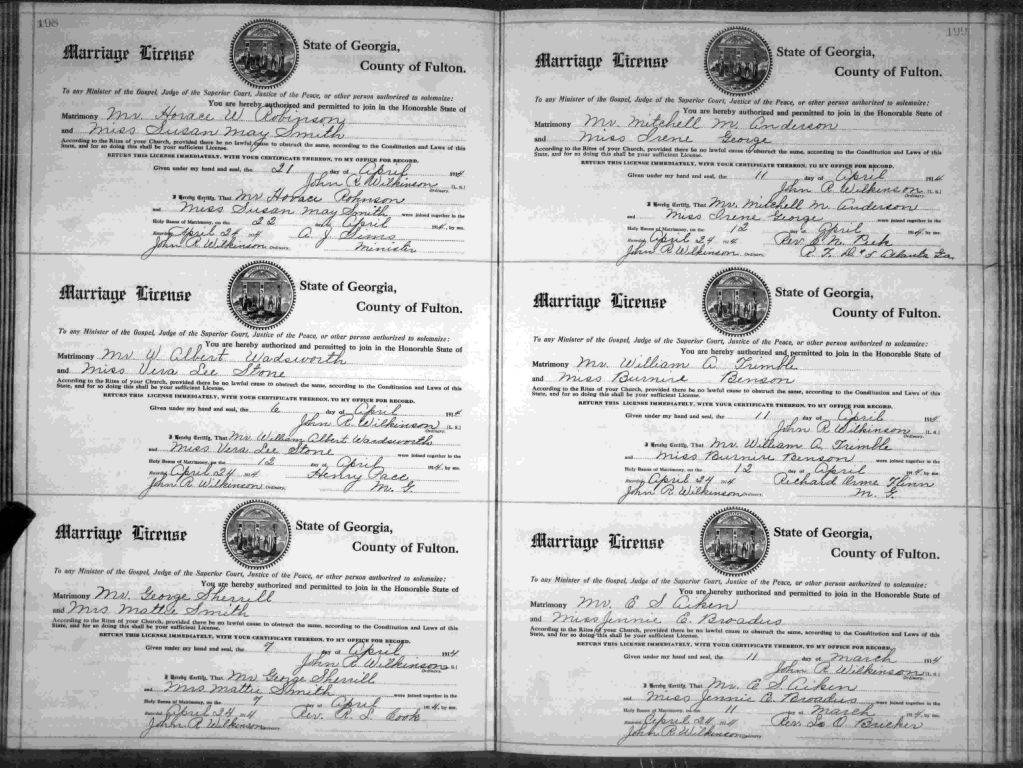 198
Marriage License
State of Georgia,
County of Fulton.
To any Minister of the Gospel, Judge of the Superior Court, Justice of the Peace, or other person authorized to solemnize:
You are hereby authorized and permitted to join in the Honorable State of
Matrimony Mr. Horace W Robinson
and Miss Susan May Smith
According to the Rites of your Church, provided there be no lawful cause to obstruct the same, according to the Constitution and Laws of this
State, and for so doing this shall be your sufficient License.
RETURN THIS LICENSE IMMEDIATELY, WITH YOUR CERTIFICATE THEREON, TO MY OFFICE FOR RECORD.
Given under my hand and seal, the 21 day of April 1914
John R. Wilkinson (L. S.)
Ordinary.
I Hereby Certify, That Mr Horace Robinson
and Miss Susan May Smith were joined together in the
Holy Banns of Matrimony, on the 22 day of April 1914, by me.
Recorded April 24 1914 A. J. Sims
John R. Wilkinson Ordinary. Minister
Marriage License
State of Georgia,
County of Fulton.
To any Minister of the Gospel, Judge of the Superior Court, Justice of the Peace, or other person authorized to solemnize:
You are hereby authorized and permitted to join in the Honorable State of
Matrimony Mr. W Albert Wadsworth
and Miss Vera Lee Stone
According to the Rites of your Church, provided there be no lawful cause to obstruct the same, according to the Constitution and Laws of this
State, and for so doing this shall be your sufficient License.
RETURN THIS LICENSE IMMEDIATELY, WITH YOUR CERTIFICATE THEREON, TO MY OFFICE FOR RECORD.
Given under my hand and seal, the 6 day of April 1914
John R. Wilkinson (L. S.)
Ordinary.
I Hereby Certify, That Mr. William Albert Wardsworth
and Miss Vera Lee Stone were joined together in the
Holy Banns of Matrimony, on the 12 day of April 1914, by me.
Recorded April 24 1914 Henry Pace
John R. Wilkinson Ordinary. M. G.
Marriage License
State of Georgia,
County of Fulton.
To any Minister of the Gospel, Judge of the Superior Court, Justice of the Peace, or other person authorized to solemnize:
You are hereby authorized and permitted to join in the Honorable State of
Matrimony Mr. George Sherrill
and Mrs Mattie Smith
According to the Rites of your Church, provided there be no lawful cause to obstruct the same, according to the Constitution and Laws of this
State, and for so doing this shall be your sufficient License.
RETURN THIS LICENSE IMMEDIATELY, WITH YOUR CERTIFICATE THEREON, TO MY OFFICE FOR RECORD.
Given under my hand and seal, the 7 day of April 1914
John R. Wilkinson (L. S.)
Ordinary.
I Hereby Certify, That Mr George Sherrill
and Mrs Mattie Smith were joined together in the
Holy Banns of Matrimony, on the 7 day of April 1914, by me.
Recorded April 24 1914 Rev. R. L. Cook
John R. Wilkinson Ordinary.
199
Marriage License
State of Georgia,
County of Fulton.
To any Minister of the Gospel, Judge of the Superior Court, Justice of the Peace, or other person authorized to solemnize:
You are hereby authorized and permitted to join in the Honorable State of
Matrimony Mr. Mitchell M. Anderson
and Miss Irene George
According to the Rites of your Church, provided there be no lawful cause to obstruct the same, according to the Constitution and Laws of this
State, and for so doing this shall be your sufficient License.
RETURN THIS LICENSE IMMEDIATELY, WITH YOUR CERTIFICATE THEREON, TO MY OFFICE FOR RECORD.
Given under my hand and seal, the 11 day of April 1914
John R. Wilkinson (L. S.)
Ordinary.
I Hereby Certify, That Mr. Mitchell M. Anderson
and Miss Irene George were joined together in the
Holy Banns of Matrimony, on the 12 day of April 1914, by me.
Recorded April 24 1914 Rev. M. Peek
John R. Wilkinson Ordinary. R. F. D. Atlanta Ga.
Marriage License
State of Georgia,
County of Fulton.
To any Minister of the Gospel, Judge of the Superior Court, Justice of the Peace, or other person authorized to solemnize:
You are hereby authorized and permitted to join in the Honorable State of
Matrimony Mr. William A. Trimble
and Miss Burnire Benson
According to the Rites of your Church, provided there be no lawful cause to obstruct the same, according to the Constitution and Laws of this
State, and for so doing this shall be your sufficient License.
RETURN THIS LICENSE IMMEDIATELY, WITH YOUR CERTIFICATE THEREON, TO MY OFFICE FOR RECORD.
Given under my hand and seal, the 11 day of April 1914
John R. Wilkinson (L. S.)
Ordinary.
I Hereby Certify, That Mr. William A. Trimble
and Miss Burnire Benson were joined together in the
Holy Banns of Matrimony, on the 12 day of April 1914, by me.
Recorded April 24 1914 Richard Orme Flinn
John R. Wilkinson Ordinary. M. G.
Marriage License
State of Georgia,
County of Fulton.
To any Minister of the Gospel, Judge of the Superior Court, Justice of the Peace, or other person authorized to solemnize:
You are hereby authorized and permitted to join in the Honorable State of
Matrimony Mr. E S Aiken
and Miss Jennie E. Broadus
According to the Rites of your Church, provided there be no lawful cause to obstruct the same, according to the Constitution and Laws of this
State, and for so doing this shall be your sufficient License.
RETURN THIS LICENSE IMMEDIATELY, WITH YOUR CERTIFICATE THEREON, TO MY OFFICE FOR RECORD.
Given under my hand and seal, the 11 day of March 1914
John R. Wilkinson (L. S.)
Ordinary.
I Hereby Certify, That Mr. E. S. Aiken
and Miss Jennie E Broadus were joined together in the
Holy Banns of Matrimony, on the 11 day of March 1914, by me.
Recorded April 24 1914 Rev. L. O Bricker
John R. Wilkinson Ordinary.